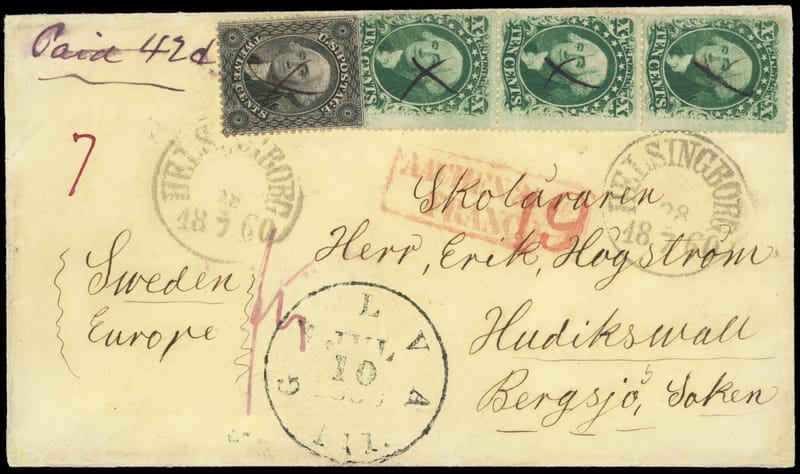 Paid 42d
U.S. POSTAGE
TWELVE CENTS
TEN CENTS
X
TEN CENTS
X
TEN CENTS
X
7
HELSINGBORG
28
18 7 60
HELSINGBORG
28
18 7 60
AACHEN
FRANCO
19
Skoläraren
Herr, Erik, Hogstrom
Hudikswall
Bergsjö, Soken
Sweden
Europe
GALVA
JUL
10
Ill.